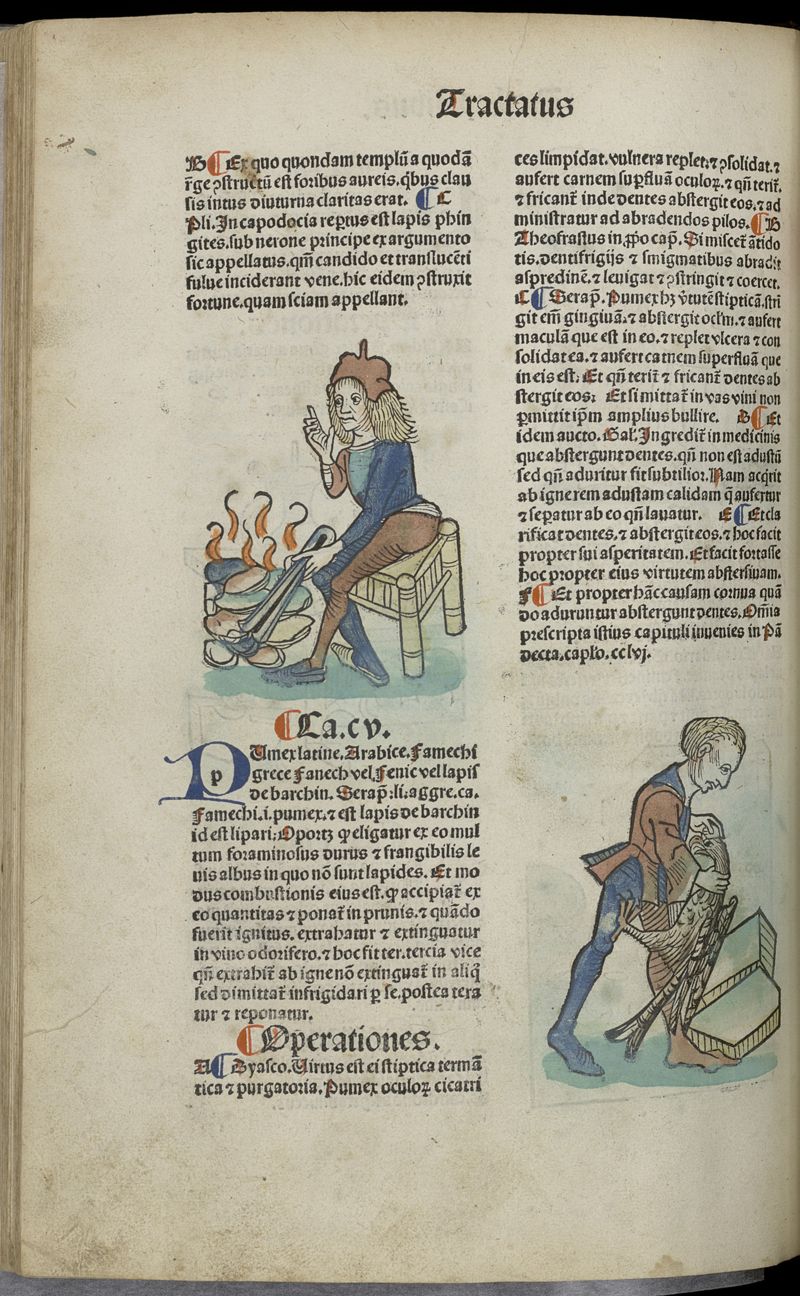 Tractatus
B ¶ Ex quo quondam templū a quodā
r̄ge ꝯstructū est foribus aureis. q̇bus clau
sis intus diuturna claritas erat. ¶ C
Pli. In capodocia reꝑtus est lapis phin
gites. sub nerone principe ex argumento
sic appellatus. qm̄ candido et translucēti
fulue inciderant vene. hic eidem ꝯstruxit
fortune. quam sciam appellant.
¶ Ca. cv.
PUmex latine. Arabice. Famechi
grece Fanech vel. Fenic vel lapis
de barchin. Serap̄. li. aggre. ca.
Famechi. i. pumex. ⁊ est lapis de barchin
id est lipari. Oportꝫ ꝙ eligatur ex eo mul
tum foraminosus durus ⁊ frangibilis le
uis albus in quo nō sunt lapides. Et mo
dus combustionis eius est. ꝙ accipiat̄ ex
eo quantitas ⁊ ponat̄ in prunis. ⁊ quādo
fuerit ignitus. extrahatur ⁊ extinguatur
in vino odorifero. ⁊ hoc fit ter. tercia vice
qn̄ extrahit̄ ab igne nō extinguat̄ in aliq̇
sed dimittat̄ infrigidari ꝑ se. postea tera
tur ⁊ reponatur.
¶ Operationes.
A ¶ Dyasco. Virtus est ei stiptica termā
tica ⁊ purgatoria. Pumex oculoꝝ cicatri
ces limpidat. vulnera replet. ⁊ ꝯsolidat. ⁊
aufert carnem suꝑfluā oculoꝝ. ⁊ qn̄ terit̄.
⁊ fricant̄ inde dentes abstergit eos. ⁊ ad
ministratur ad abradendos pilos. ¶ B
Theofrastus in ꝓpo cap̄. Si miscet̄ ātido
tis. dentifrigijs ⁊ smigmatibus abradit
aspredinē. ⁊ leuigat ⁊ ꝯstringit ⁊ coercet.
C ¶ Serap̄. Pumex hꝫ v̄tutē stipticā. strī
git em̄ gingiuā. ⁊ abstergit ocl'm. ⁊ aufert
maculā que est in eo. ⁊ replet vlcera ⁊ con
solidat ea. ⁊ aufert carnem superfluā que
in eis est. Et qn̄ terit̄ ⁊ fricant̄ dentes ab
stergit eos. Et si mittat̄ in vas vini non
ꝑmittit ip̄m amplius bullire. D ¶ Et
idem aucto. Gal'. Ingredit̄ in medicinis
que abstergunt dentes. qn̄ non est adustū
sed qn̄ aduritur fit subtilior. Nam acq̇rit
ab igne rem adustam calidam q̄ aufertur
⁊ seꝑatur ab eo qn̄ lauatur. E ¶ Et cla
rificat dentes. ⁊ abstergit eos. ⁊ hoc facit
propter sui asperitatem. Et facit fortasse
hoc propter eius virtutem abstersiuam.
F ¶ Et propter hāc causam cornua quā
do aduruntur abstergunt dentes. Om̄ia
prescripta istius capituli inuenies in Pā
decta. capl'o. cclvj.